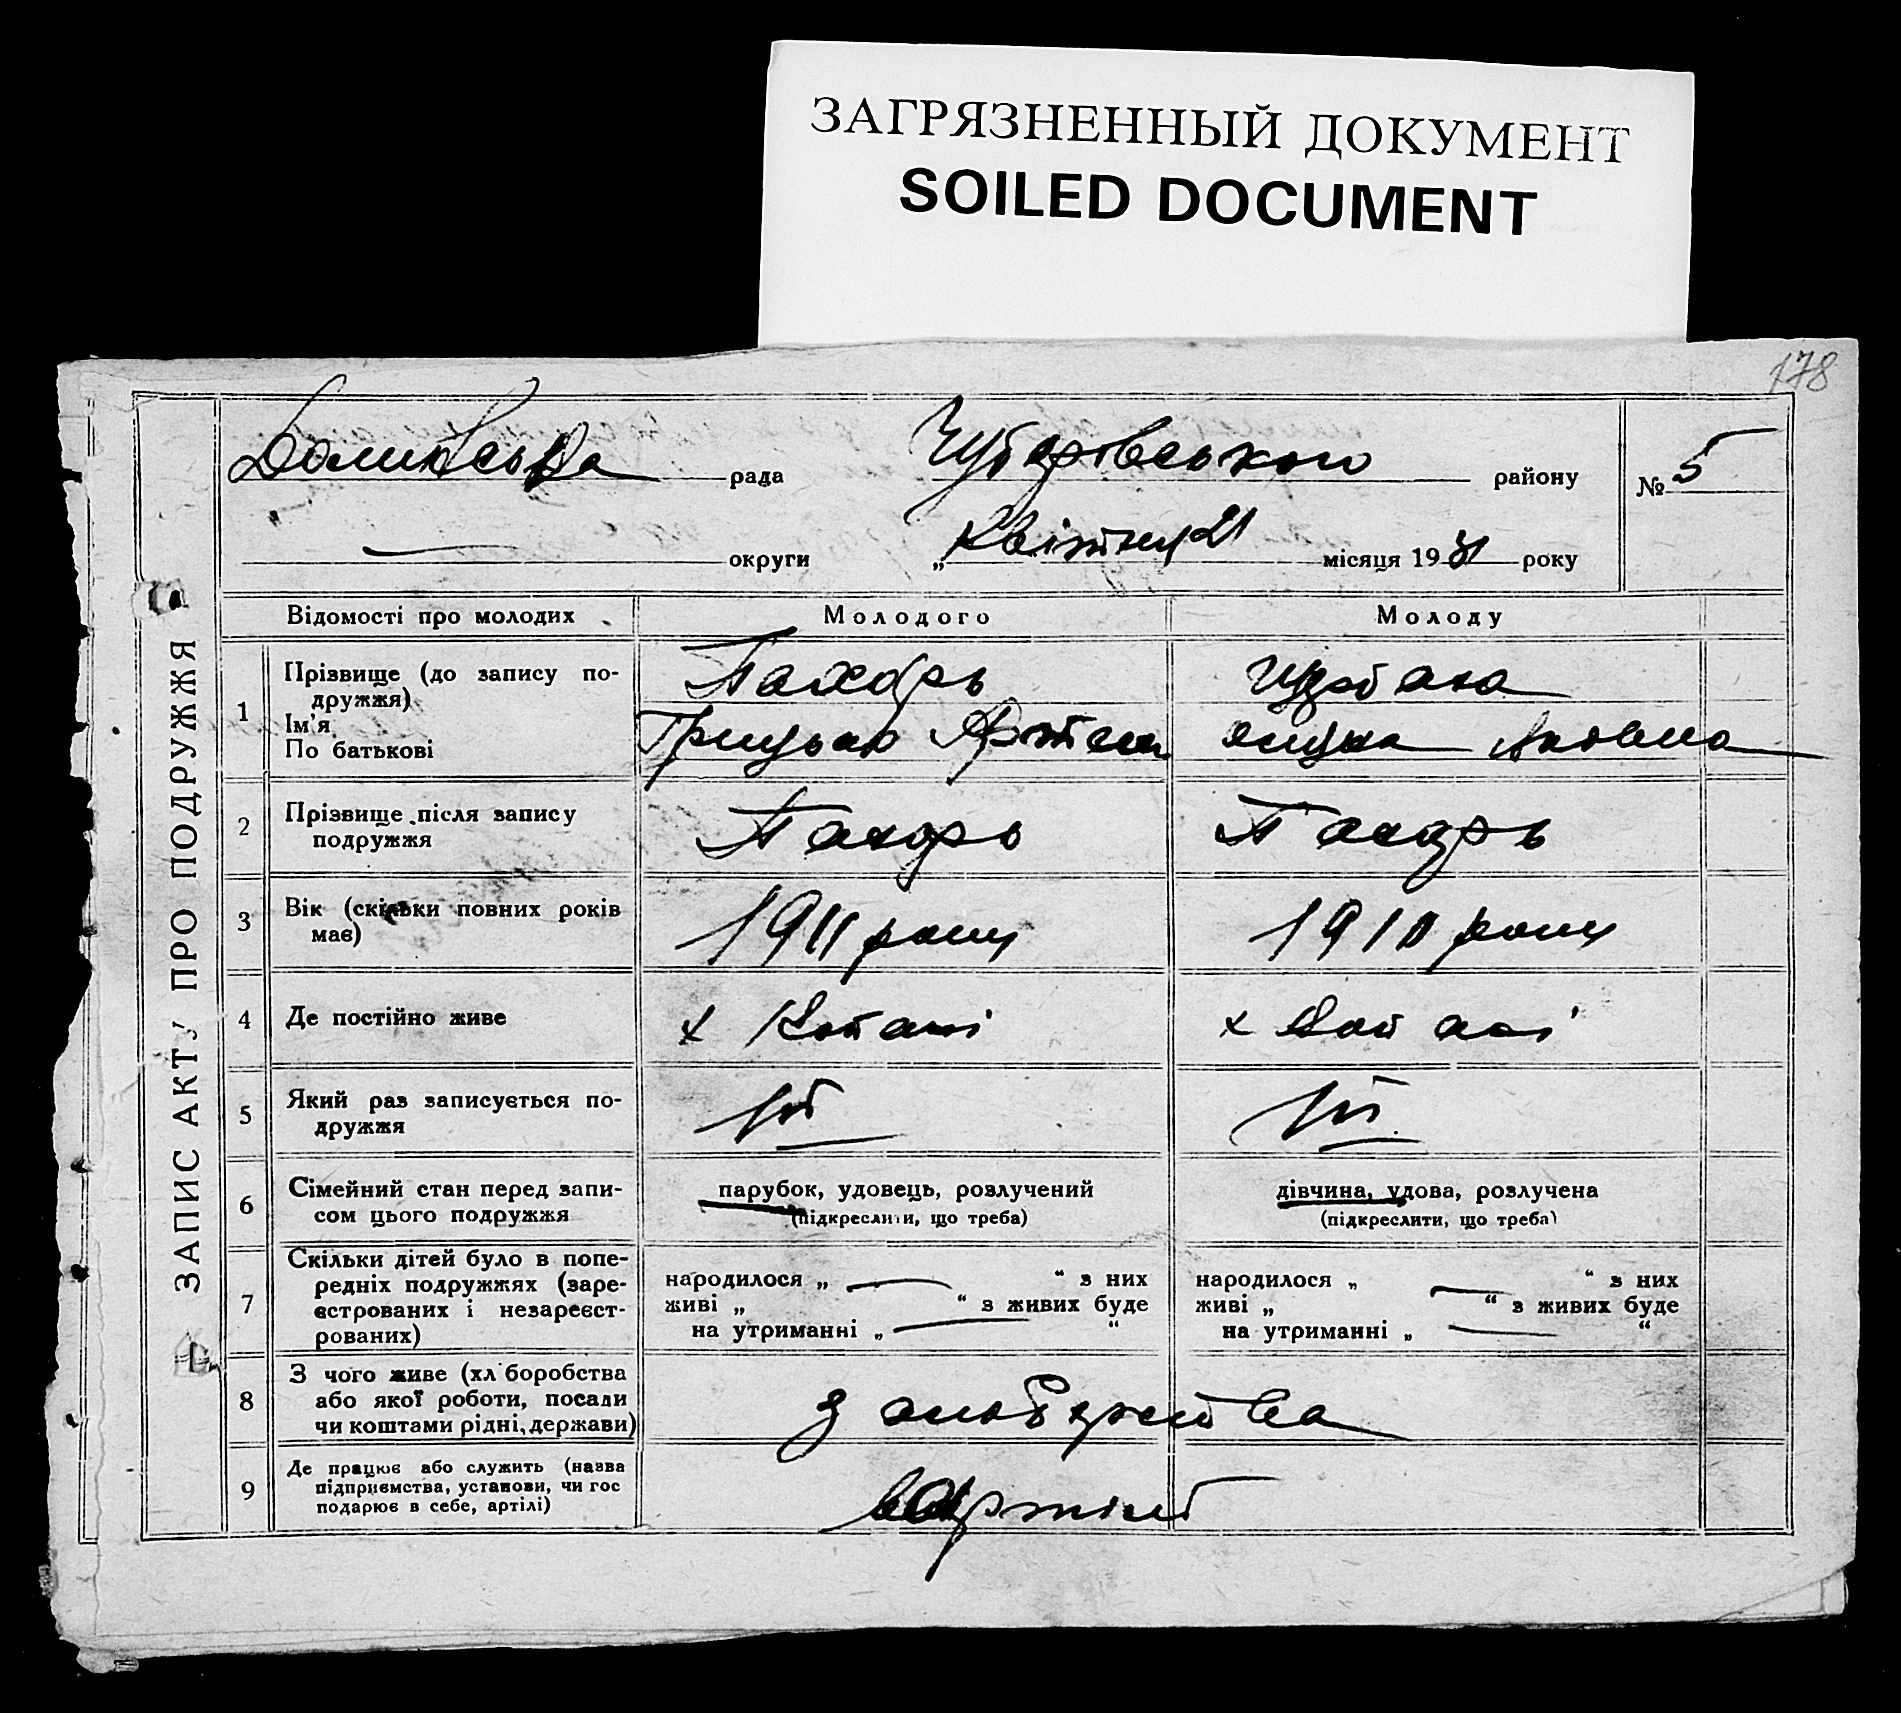 ЗАГРЯЗНЕННЫЙ ДОКУМЕНТ
SOILED DOCUMENT
178
ЗАПИС АКТУ ПРО ПОДРУЖЖЯ
Долинська рада Чубарівського району № 5
— округи „ Квітня 21 місяця 1931 року
Відомості про молодих Молодого Молоду
1 Прізвище (до запису по-
дружжя) Пахарь
Ім'я Грицько Артем
По батькові Яковна
2 Прізвище після запису
подружжя Пахарь Пахарь
3 Вік (скільки повних років
має) 1911 року 1910 року
4 Де постійно живе х х
5 Який раз записується по-
дружжя 1й 1й
6 Сімейний стан перед запи-
сом цього подружжя
парубок, удовець, розлучений
(підкреслити, що треба)
дівчина, удова, розлучена
(підкреслити, що треба)
7 Скільки дітей було в попе-
редніх подружжях (заре-
єстрованих і незареєст-
рованих)
народилося „ — “ з них
живі „ “ з живих буде
на утриманні „ — “
народилося „ — “ з них
живі „ “ з живих буде
на утриманні „ — “
8 З чого живе (хліборобства
або якої роботи, посади
чи коштами рідні, держави)
з
9 Де працює або служить (назва
підприємства, установи, чи гос
подарює в себе, артілі)
в Артілі